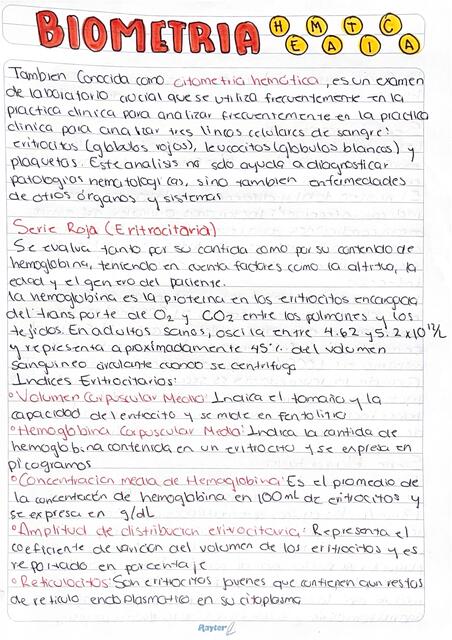 BIOMETRIA HEMATICA
Tambien Conocida como citometria hemática, es un examen
de laboratorio crucial que se utiliza frecuentemente en la
practica clinica para analizar frecuentemente en la practica
clinica para analizar tres lineas celulares de sangre:
eritrocitos (globulos rojos), leucocitos (globulos blancos) y
plaquetas. Este analisis no solo ayuda a diagnosticar
patologias hematologicas, sino tambien enfermedades
de otros órganos y sistemas
Serie Roja (Eritrocitaria)
Se evalua tanto por su cantida como por su contenido de
hemoglobina, teniendo en cuenta factores como la altitud, la
edad y el genero del paciente.
la hemoglobina es la proteina en los eritrocitos encargada
del transporte de O2 y CO2 entre los pulmones y los
tejidos. En adultos sanos, oscila entre 4.62 y 5.2x10¹²/L
y representa aproximadamente 45% del volumen
sanguineo circulante cuando se centrifuga
Indices Eritrocitarios:
° Volumen Corpuscular Medio: Indica el tamaño y la
capacidad del eritrocito y se mide en fentolitro
° Hemoglobina Corpuscular Media: Indica la cantida de
hemoglobina contenida en un eritrocito y se expresa en
picogramos
° Concentracion media de Hemoglobina: Es el promedio de
la concentación de hemoglobina en 100 mL de eritrocitos y
se expresa en g/dL
° Amplitud de distribucion eritrocitaria: Representa el
coeficiente de varicion del volumen de los eritrocitos y es
reportado en porcentaje
° Reticulocitos: Son eritrocitos jovenes que contienen aun restos
de reticulo endoplasmatico en su citoplasma
Rayter